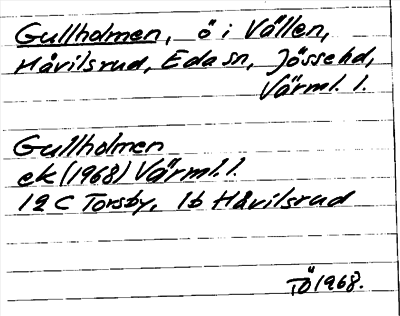 Gullholmen, ö i Vällen,
Håvilsrud, Eda sn, Jösse hd,
Värml. l.
Gullholmen
ek (1968) Värml. l.
12 C Torsby, 1b Håvilsrud
TÖ 1968.